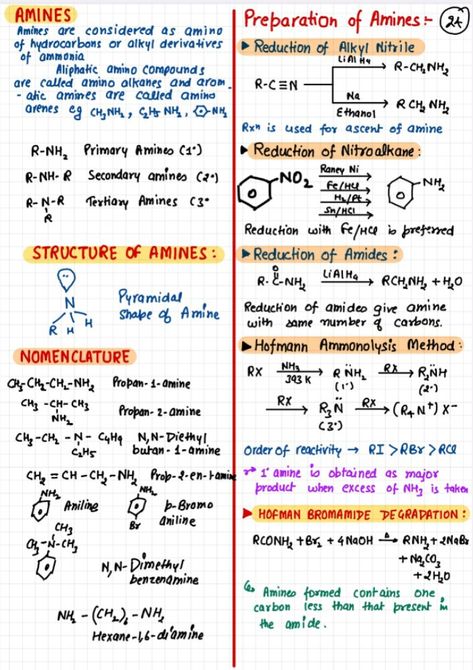 AMINES
Amines are considered as amino
of hydrocarbons or alkyl derivatives
of ammonia
Aliphatic amino compounds
are called amino alkanes and arom
-atic amines are called amino
arenes eg CH₃NH₂, C₂H₅NH₂, -NH₂
R-NH₂ Primary Amines (1°)
R-NH-R Secondary amines (2°)
R-N-R Tertiary Amines (3°
R
STRUCTURE OF AMINES:
N
R H H
Pyramidal
shape of Amine
NOMENCLATURE
CH₃-CH₂-CH₂-NH₂ Propan-1-amine
CH₃-CH-CH₃
NH₂
Propan-2-amine
CH₃-CH₂-N-C₄H₉ N,N-Diethyl
C₂H₅ butan-1-amine
CH₂=CH-CH₂-NH₂ Prop-2-en-1-amine
NH₂ Aniline
NH₂ p-Bromo
Br aniline
CH₃
CH₃-N-CH₃
N,N-Dimethyl
benzenamine
NH₂-(CH₂)₆-NH₂
Hexane-1,6-diamine
Preparation of Amines:-
24
Reduction of Alkyl Nitrile
R-C≡N
LiAlH₄ R-CH₂NH₂
Na
Ethanol
RCH₂NH₂
Rxⁿ is used for ascent of amine
Reduction of Nitroalkane:
NO₂
Raney Ni
Fe/HCl
H₂/Pt
Sn/HCl
NH₂
Reduction with Fe/HCl is preferred
Reduction of Amides:
O
R-C-NH₂ LiAlH₄ RCH₂NH₂ + H₂O
Reduction of amides give amine
with same number of carbons.
Hofmann Ammonolysis Method:
RX NH₃ R N̈H₂ RX R₂N̈H
393 K (1°) (2°)
RX R₃N̈ RX (R₄N⁺)X⁻
(3°)
Order of reactivity → RI > RBr > RCl
1° amine is obtained as major
product when excess of NH₃ is taken
HOFMAN BROMAMIDE DEGRADATION:
RCONH₂ + Br₂ + 4NaOH Δ RNH₂ + 2NaBr
+ Na₂CO₃
+ 2H₂O
Amines formed contains one
carbon less than that present in
the amide.